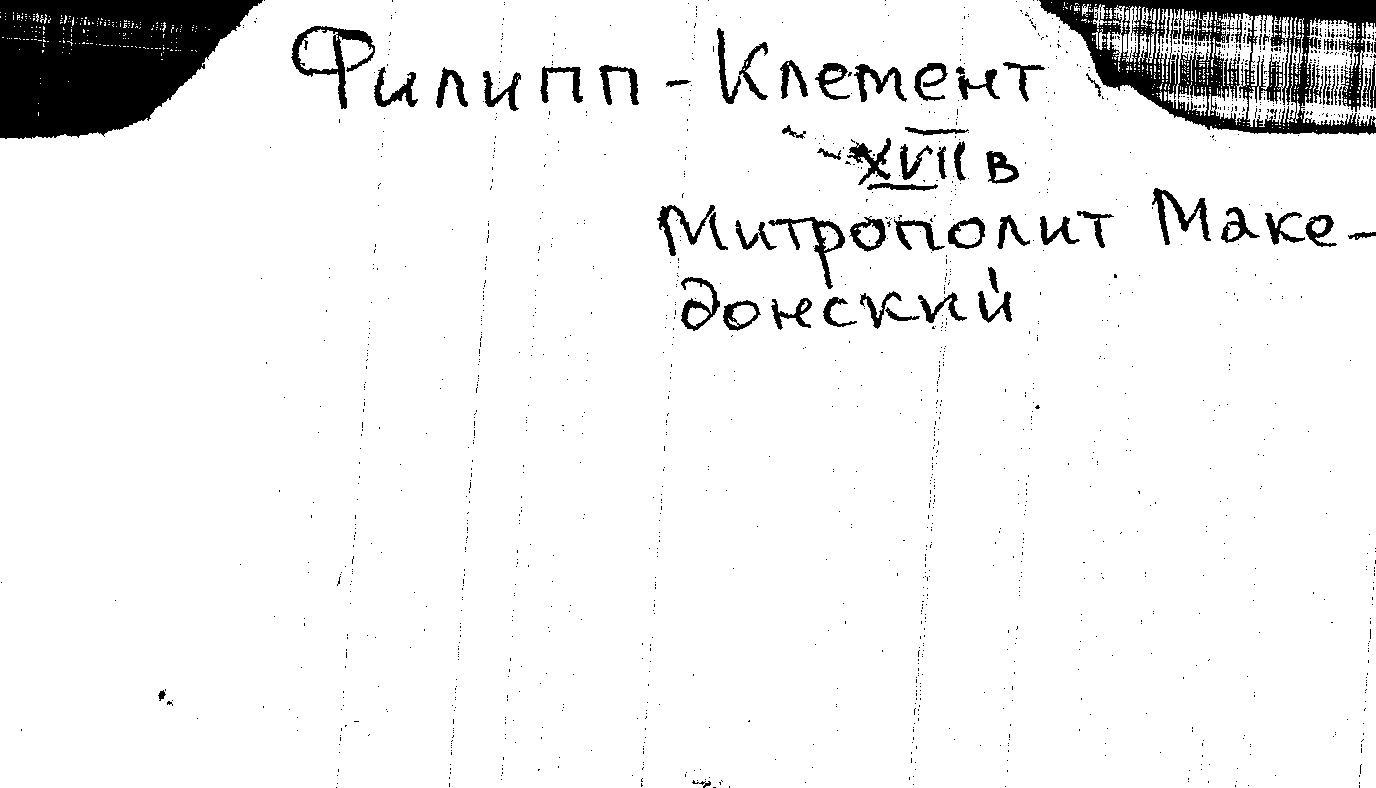 Филипп - Клемент
XVII в
Митрополит Маке-
донский